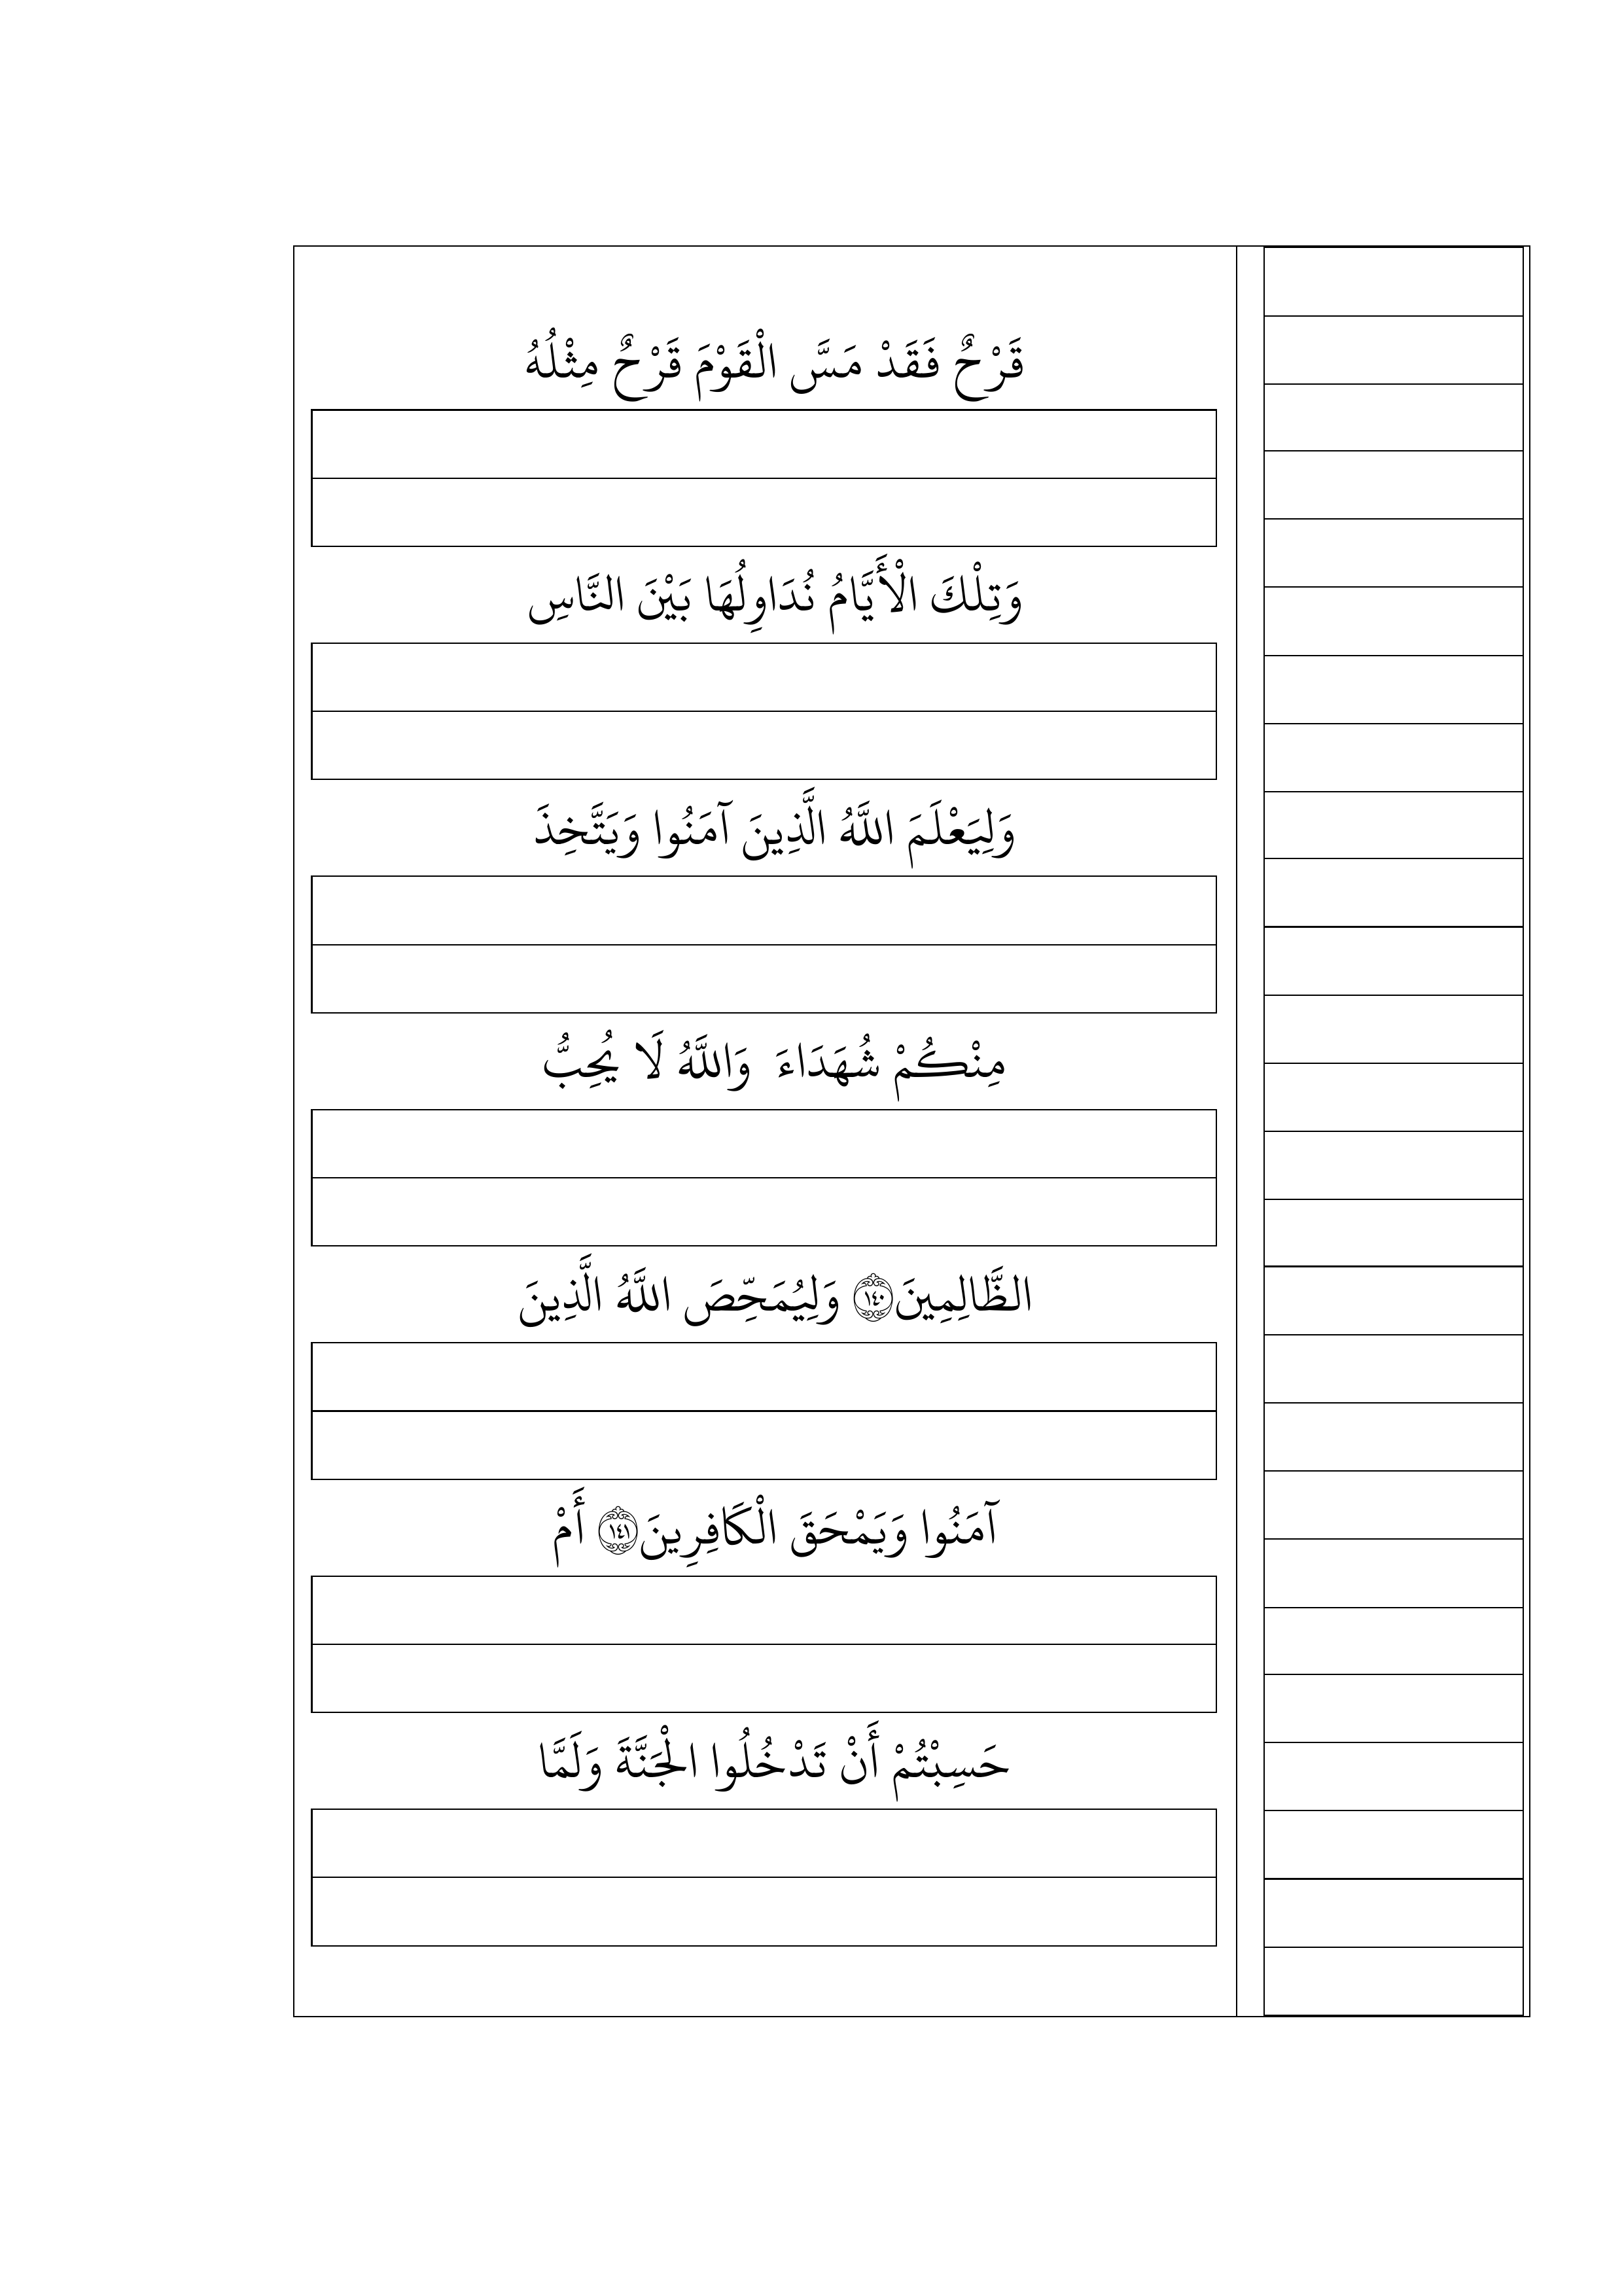 قَرْحٌ فَقَدْ مَسَّ الْقَوْمَ قَرْحٌ مِثْلُهُ
وَتِلْكَ الْأَيَّامُ نُدَاوِلُهَا بَيْنَ النَّاسِ
وَلِيَعْلَمَ اللَّهُ الَّذِينَ آمَنُوا وَيَتَّخِذَ
مِنْكُمْ شُهَدَاءَ وَاللَّهُ لَا يُحِبُّ
الظَّالِمِينَ ۝١٤٠ وَلِيُمَحِّصَ اللَّهُ الَّذِينَ
آمَنُوا وَيَمْحَقَ الْكَافِرِينَ ۝١٤١ أَمْ
حَسِبْتُمْ أَنْ تَدْخُلُوا الْجَنَّةَ وَلَمَّا